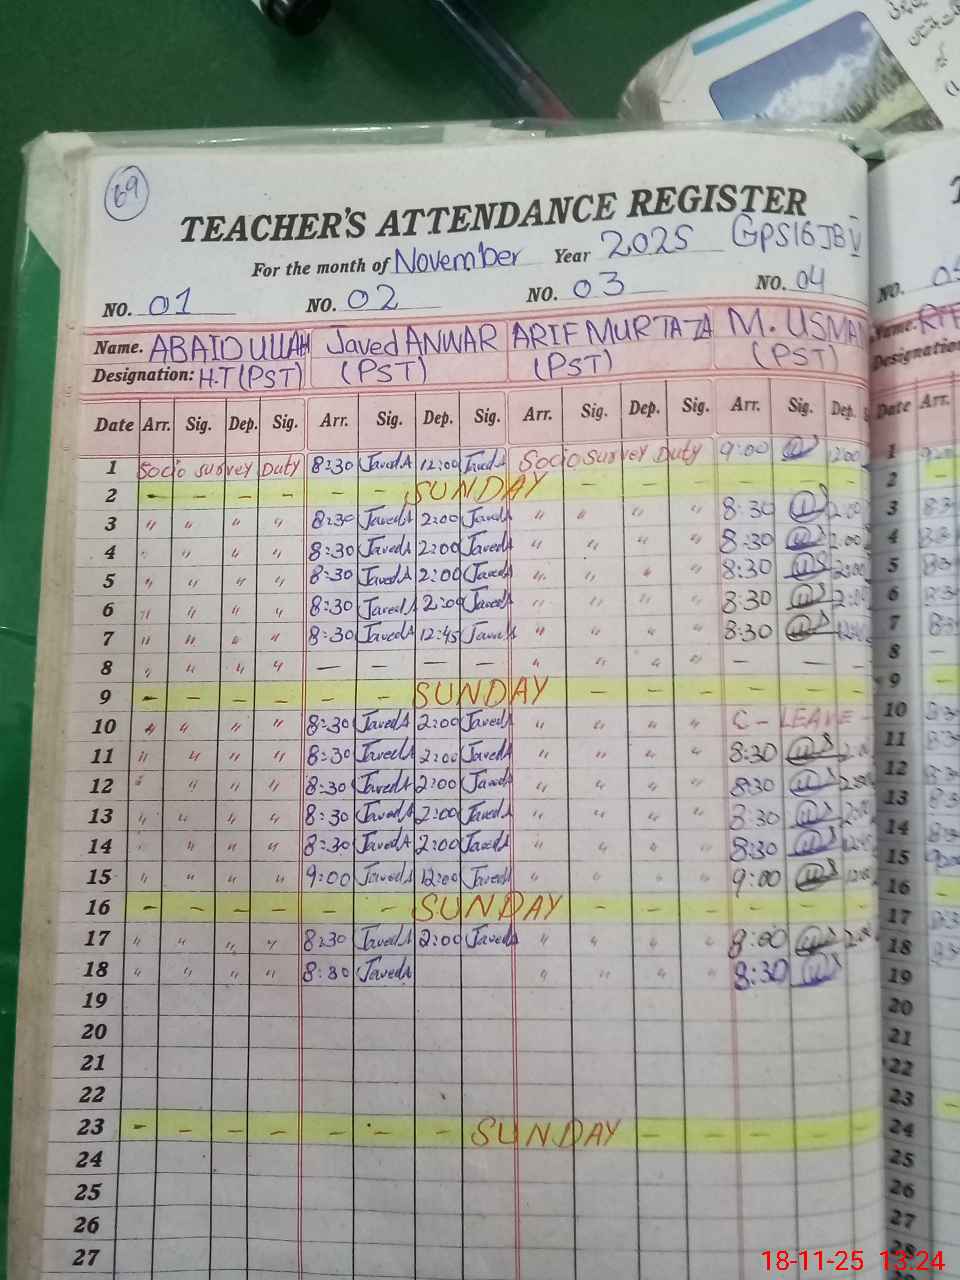 69
TEACHER'S ATTENDANCE REGISTER
For the month of November Year 2025 GPS16JB
NO. 01 NO. 02 NO. 03 NO. 04 NO.
Name. ABAIDULLAH Javed ANWAR ARIF MURTAZA M. USMAN Name.
Designation: H.T (PST) (PST) (PST) (PST)
Date Arr. Sig. Dep. Sig. Arr. Sig. Dep. Sig. Arr. Sig. Dep. Sig. Arr. Sig. Dep. Date Arr.
1 Socio survey Duty 8:30 JavedA 12:00 Socio survey Duty 9:00 1
2 - - - - - - SUNDAY - - - - - 2
3 " " " " 8:30 JavedA 2:00 Javed " " " " 8:30 2:00 3
4 " " " " 8:30 JavedA 2:00 Javed " " " " 8:30 2:00 4
5 " " " " 8:30 JavedA 2:00 Javed " " " " 8:30 2:00 5
6 " " " " 8:30 JavedA 2:00 Javed " " " " 8:30 2:00 6
7 " " " " 8:30 JavedA 12:45 Javed " " " " 8:30 7
8 " " " " - - - - " " " " - - - 8
9 - - - - - - SUNDAY - - - - - 9
10 " " " " 8:30 JavedA 2:00 Javed " " " " C-LEAVE 10
11 " " " " 8:30 JavedA 2:00 Javed " " " " 8:30 11
12 " " " " 8:30 JavedA 2:00 Javed " " " " 8:30 12
13 " " " " 8:30 JavedA 2:00 Javed " " " " 8:30 13
14 " " " " 8:30 JavedA 2:00 Javed " " " " 8:30 14
15 " " " " 9:00 JavedA 12:00 Javed " " " " 9:00 15
16 - - - - - - SUNDAY - - - - - 16
17 " " " " 8:30 JavedA 2:00 Javed " " " " 17
18 " " " " 8:30 JavedA " " " " 8:30 18
19 19
20 20
21 21
22 22
23 - - - - - - - SUNDAY - - - - 23
24 24
25 25
26 26
27 27
28
18-11-25 13:24